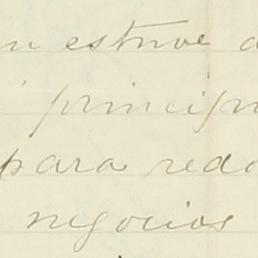 estuve
princip
para reda
negocios